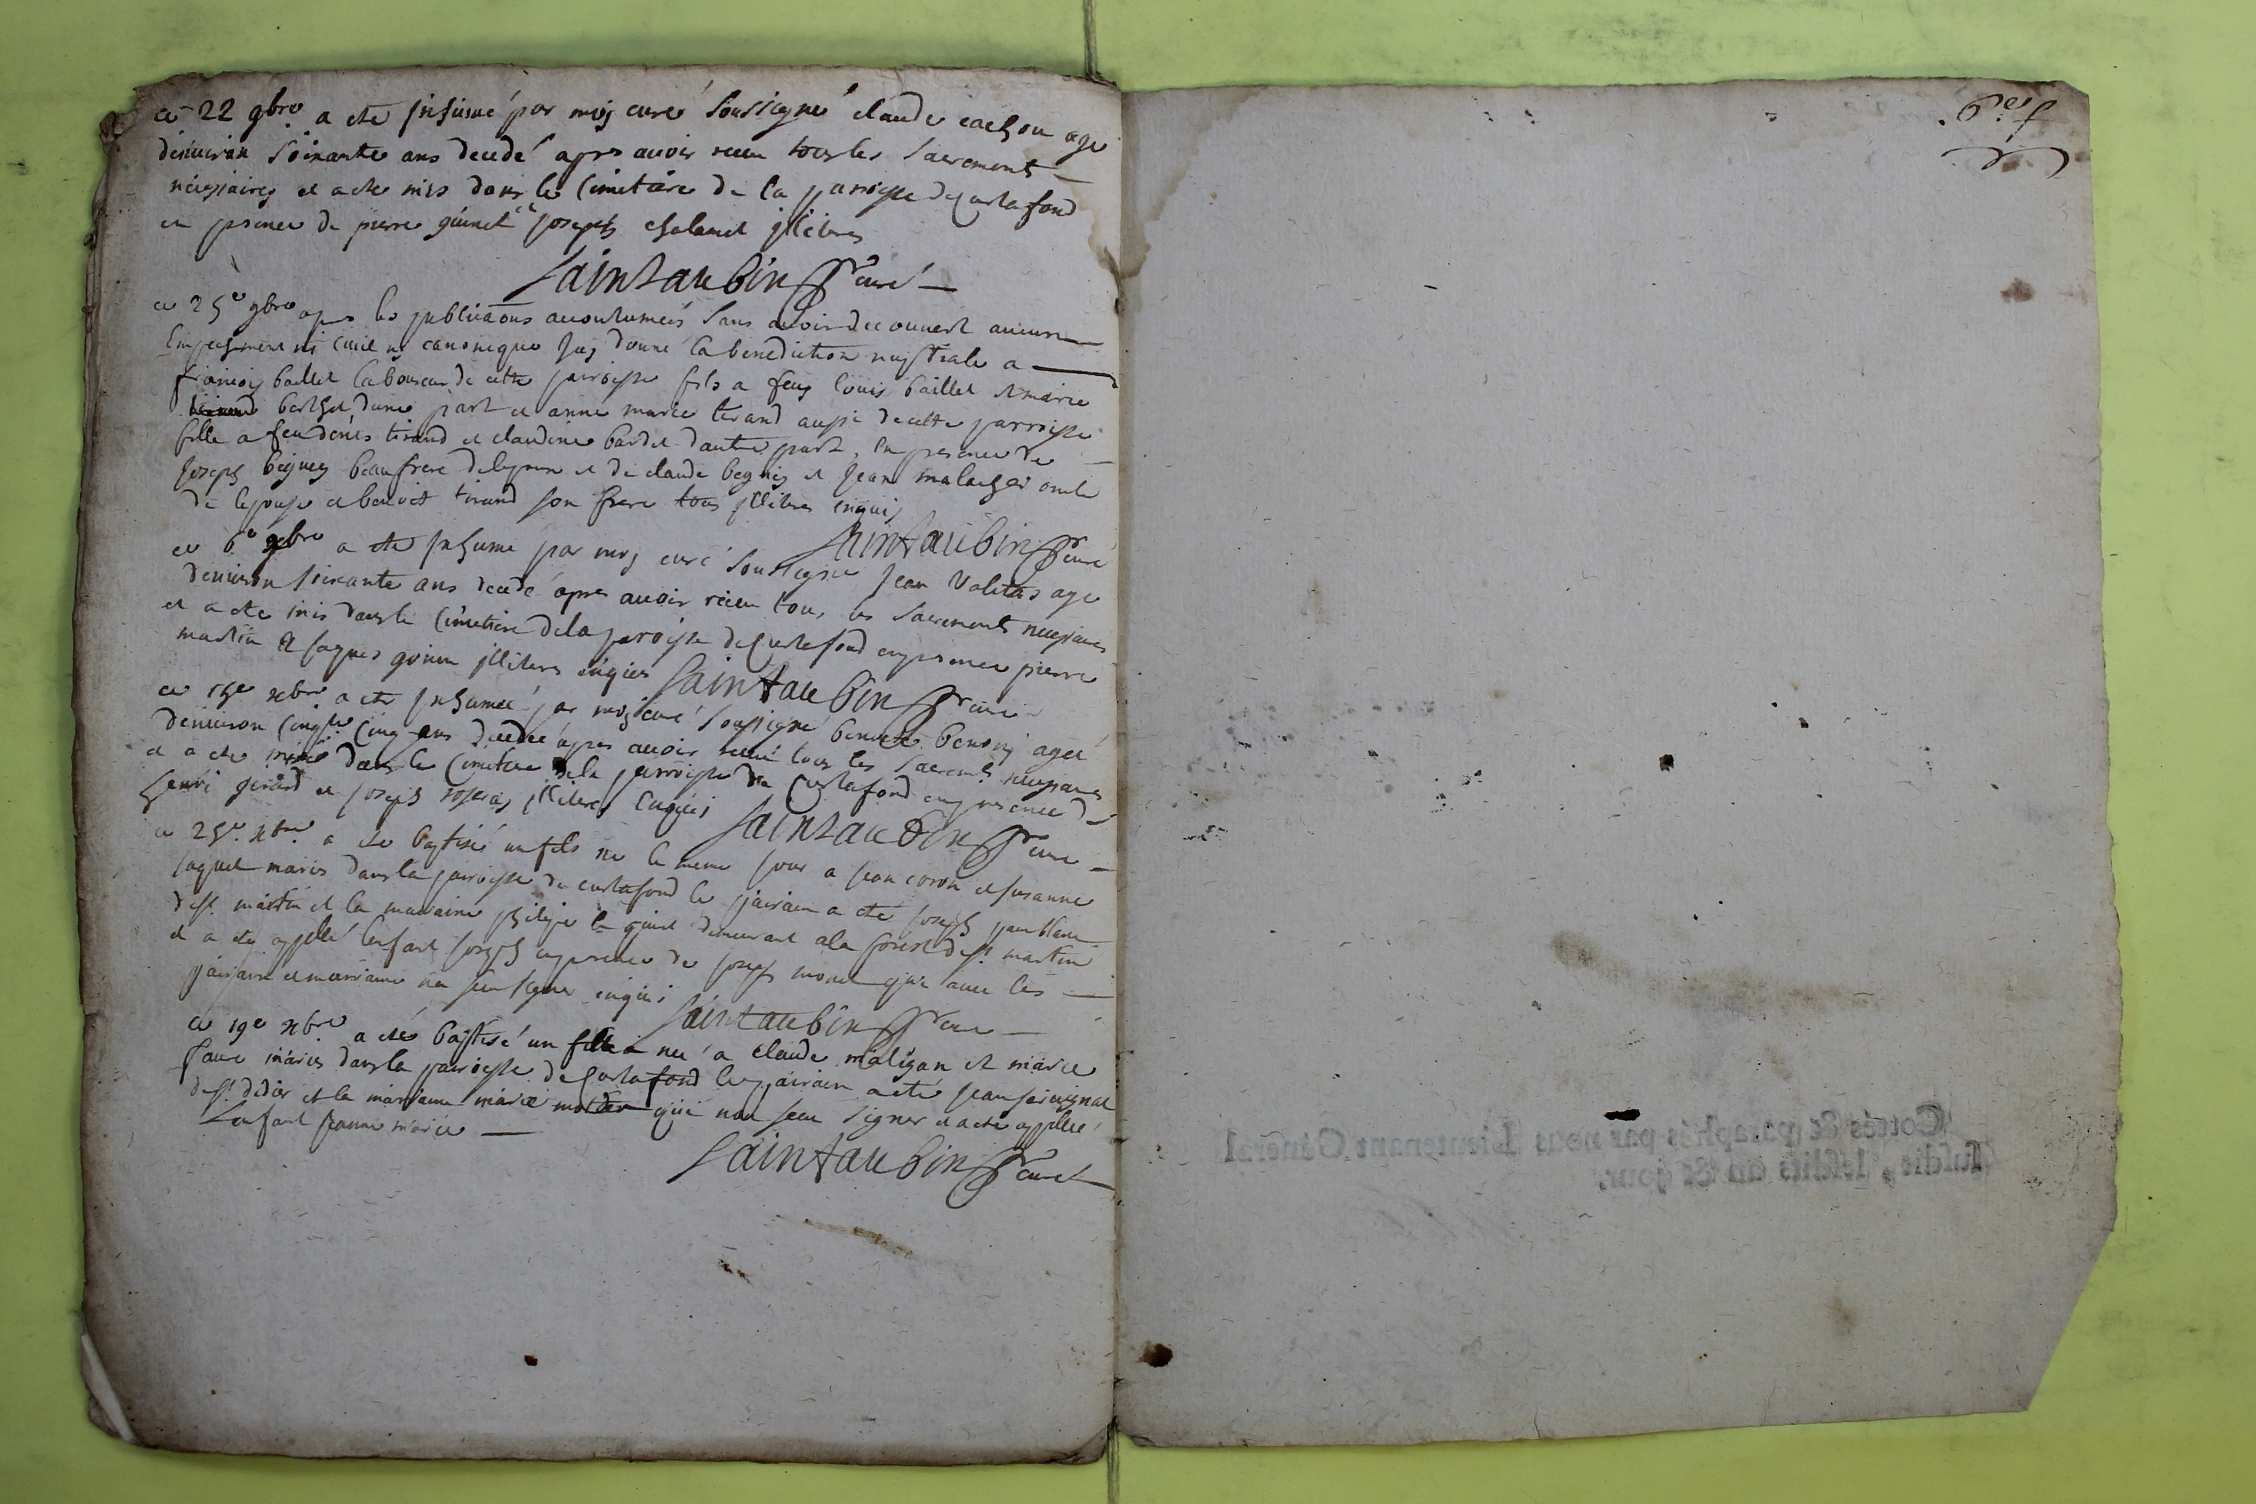 ce 22 9bre a ete inhumé par moy curé soussigné claude cachon age
denviron soixante ans decedé apres avoir receu tous les sacrements
necessaires et a ete mis dans le cimetiere de la parroisse de Curtafond
en presence de pierre guinet et joseph chalamel illiteres
Saintaubin Pr curé
ce 25e 9bre apres les publications accoutumées sans avoir decouvert aucun
empechement ni civil ni canonique jay donné la benediction nuptiale a
francois baillet laboureur de cette parroisse fils a feu louis baillet et marie
berthet dune part et anne marie tirand aussi de cette parroisse
fille a feu denis tirand et claudine bardet dautre part, en presence de
joseph beguey beaufrere de lepoux et de claude beguey et jean oncle
de lepouse et benoit tirand son frere tous illiteres enquis
Saintaubin Pr curé
ce 6e xbre a ete inhumé par moy curé soussigné jean age
denviron soixante ans decedé apres avoir receu tous les sacrements necessaires
et a ete mis dans le cimetiere de la parroisse de Curtafond en presence pierre
martin et jaques illiteres enquis
Saintaubin Pr curé
ce xbre a ete inhumée par moy curé soussigné benoite agée
denviron cinqte cinq ans decedée apres avoir receu tous les sacremts necessaires
et a ete mise dans le cimetiere de la parroisse de Curtafond en presence de
henri girard et joseph illiteres enquis
Saintaubin Pr curé
ce 25e xbre a ete baptisé un fils né le meme jour a jean coron et susanne
jaquet mariés dans la parroisse de curtafond le parrain a ete joseph
de st martin et la marraine demeurant a la forest de st martin
et a ete appellé lenfant joseph en presence de joseph morel qui avec les
parrain et marraine na sceu signer enquis
Saintaubin Pr curé
ce 19e xbre a eté baptisé un fille née a claude maligan et marie
faure mariés dans la parroisse de Curtafond le parrain a eté jean
de st didier et la marraine marie qui non sceu signer et a ete appellée
lenfant jeanne marie
Saintaubin Pr curé
Cottés & paraphés par nous Lieutenant Général
susdit, lesdits an & jour.